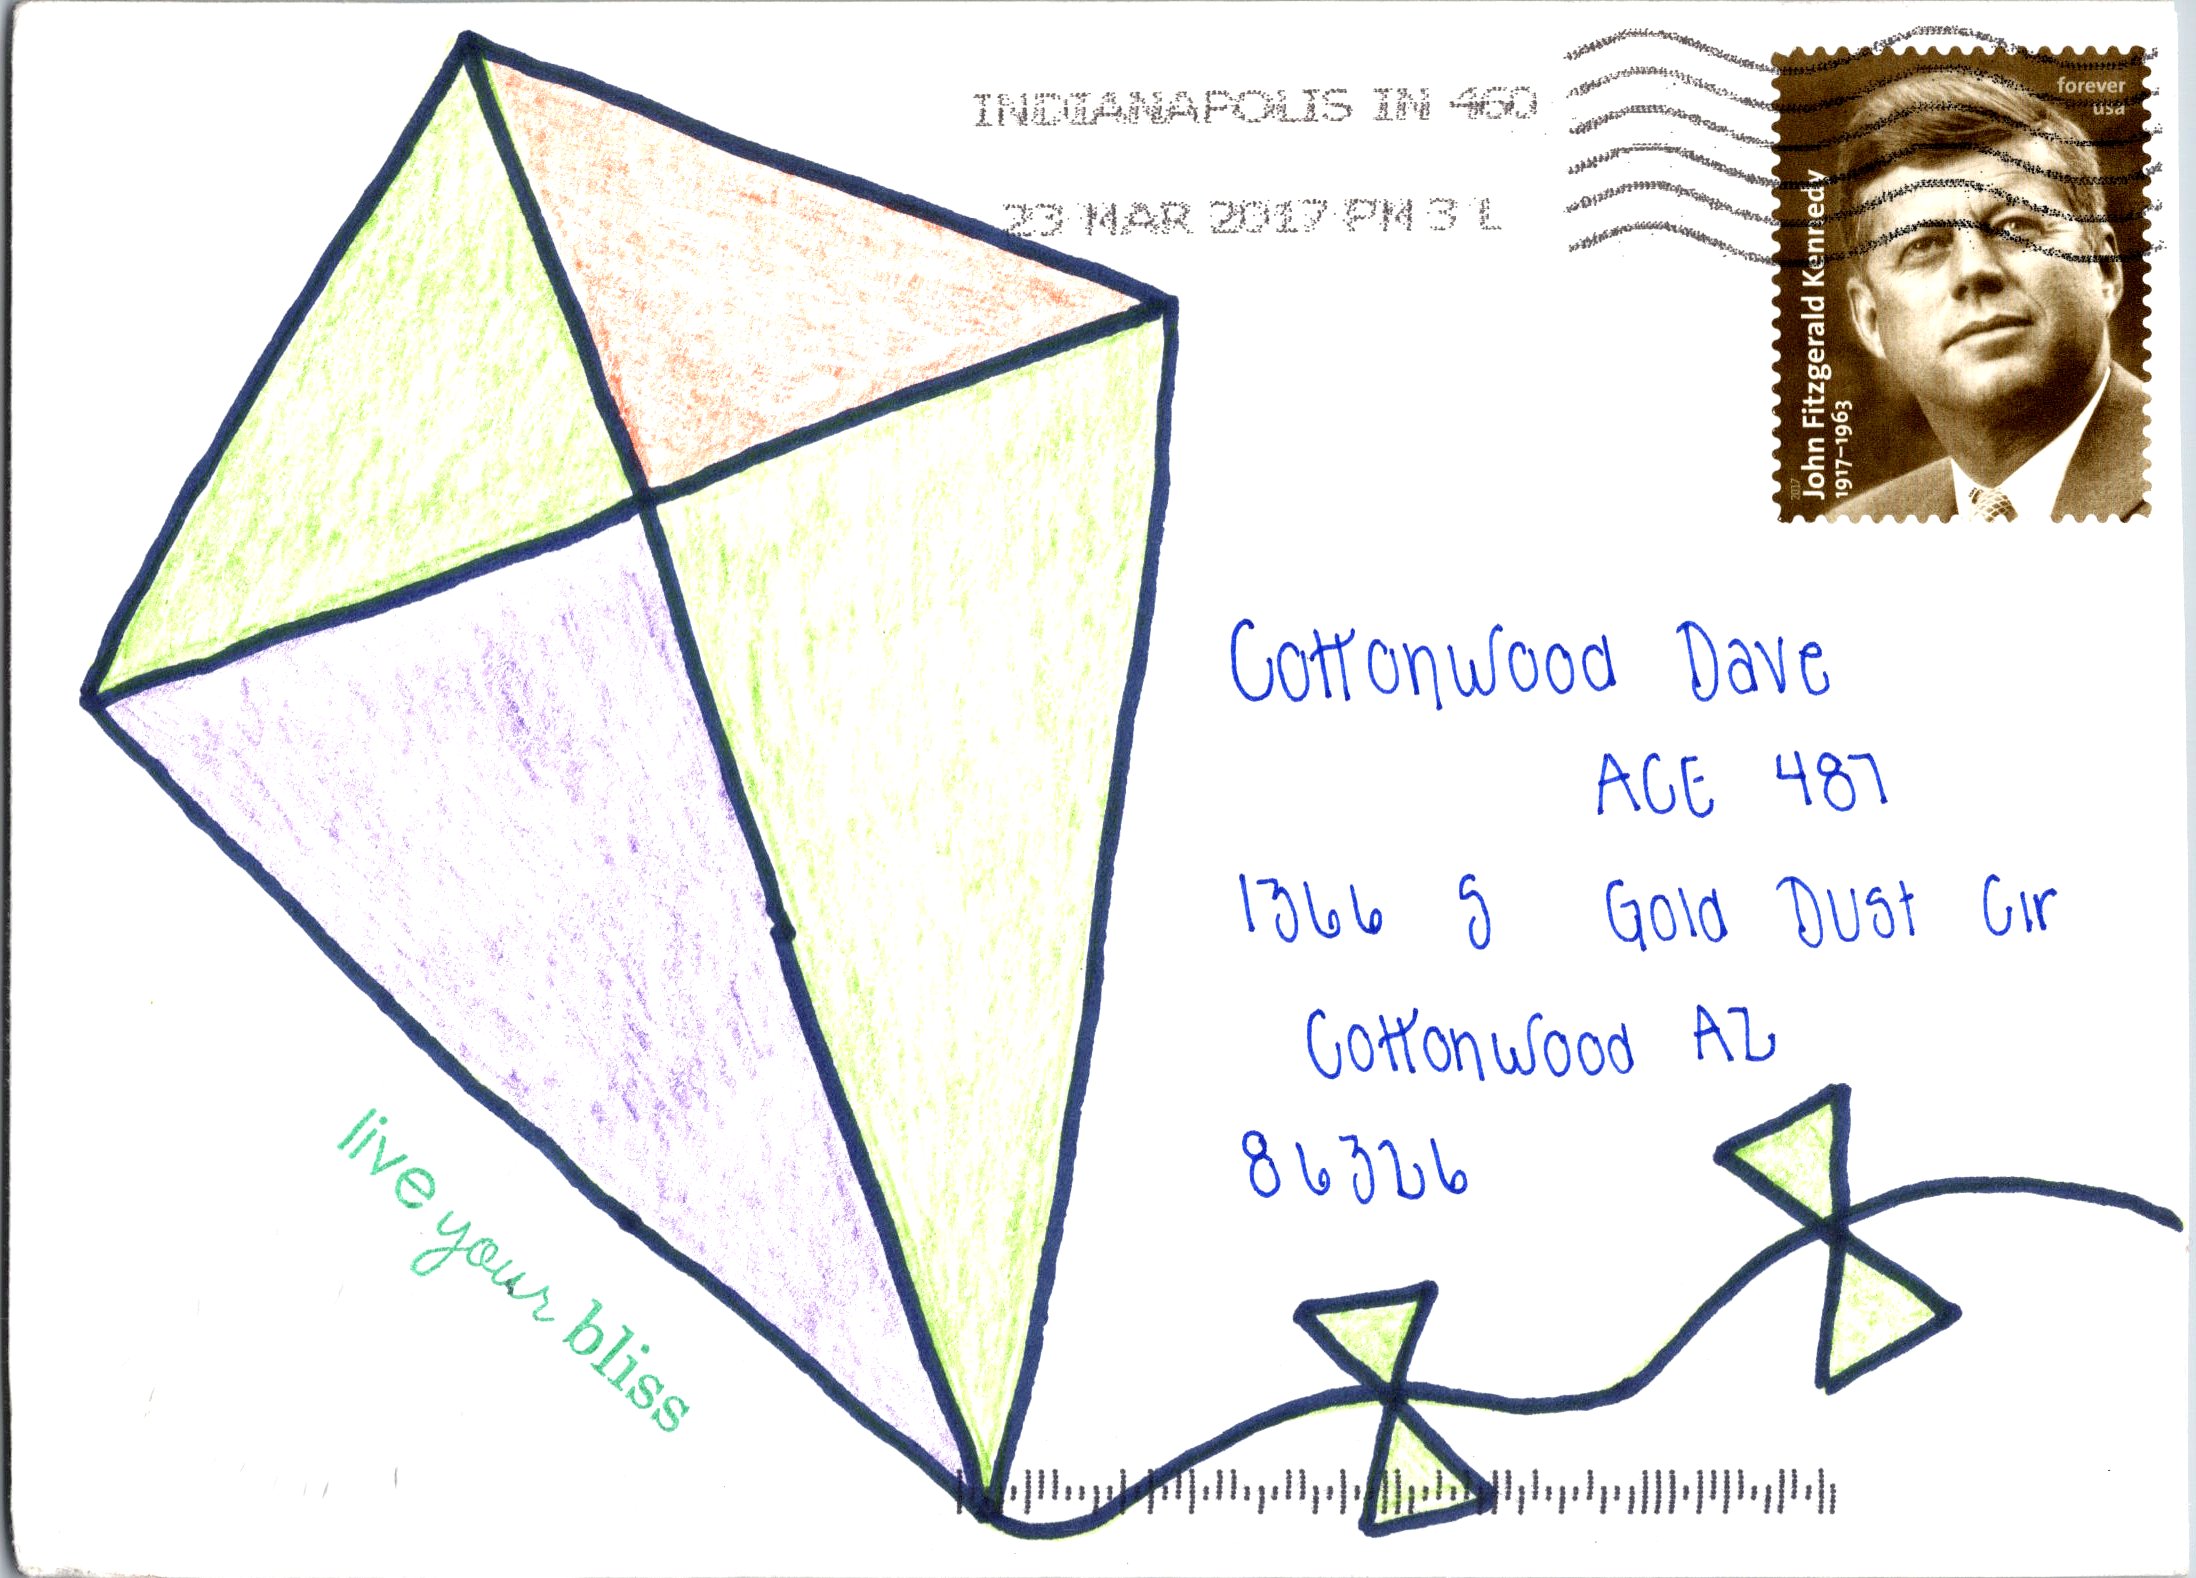 INDIANAPOLIS IN 460
23 MAR 2017 PM 3 L
forever
usa
John Fitzgerald Kennedy
1917–1963
2017
Cottonwood Dave
ACE 487
1366 S Gold Dust Cir
Cottonwood AZ
86326
live your bliss